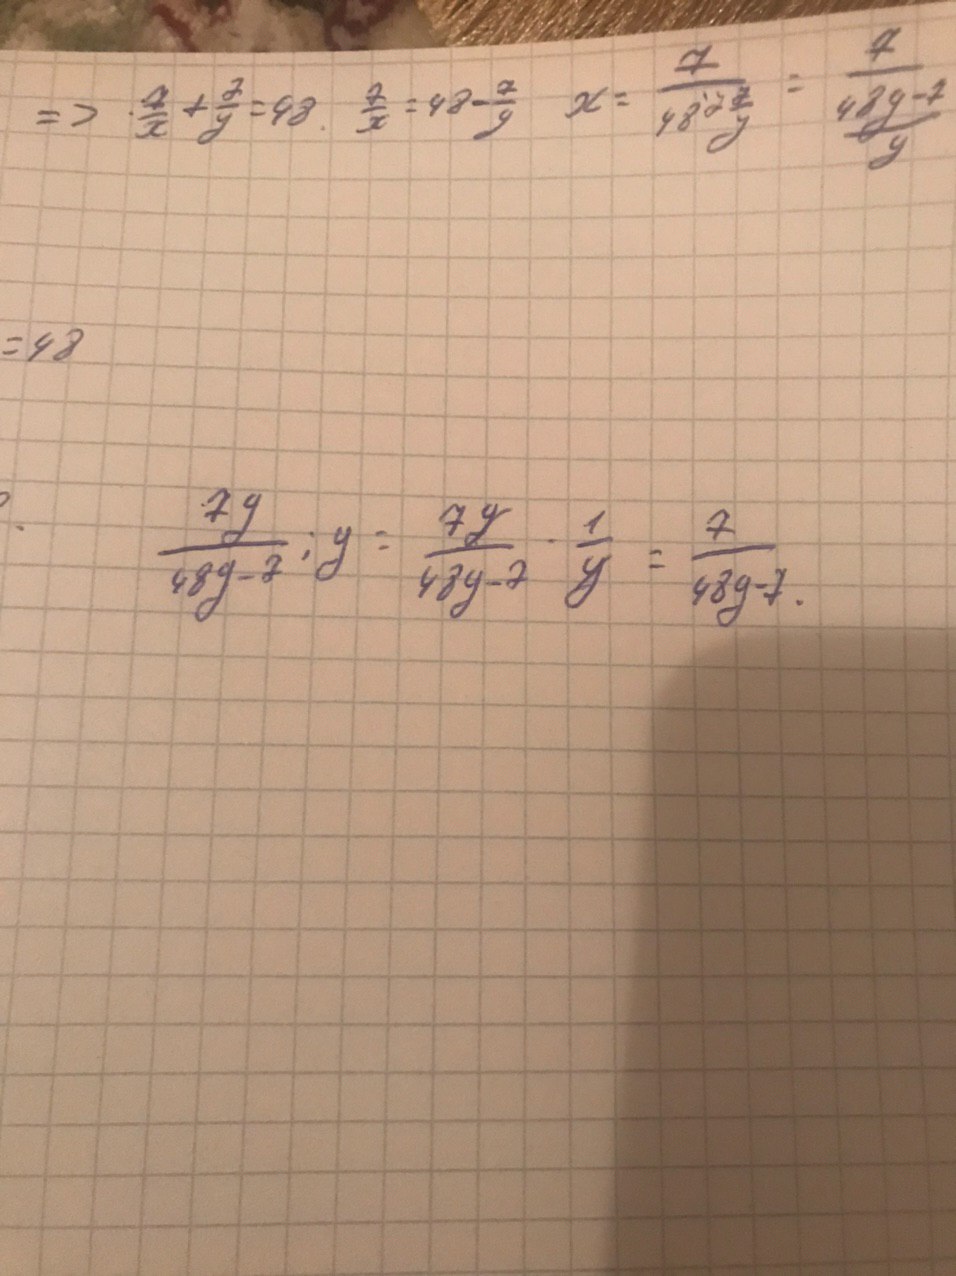 => 7/x + 7/y = 48. 7/x = 48 - 7/y x = 7/(48 - 7/y) = 7/((48y - 7)/y)
= 48
7y/(48y - 7) : y = 7y/(48y - 7) · 1/y = 7/(48y - 7).